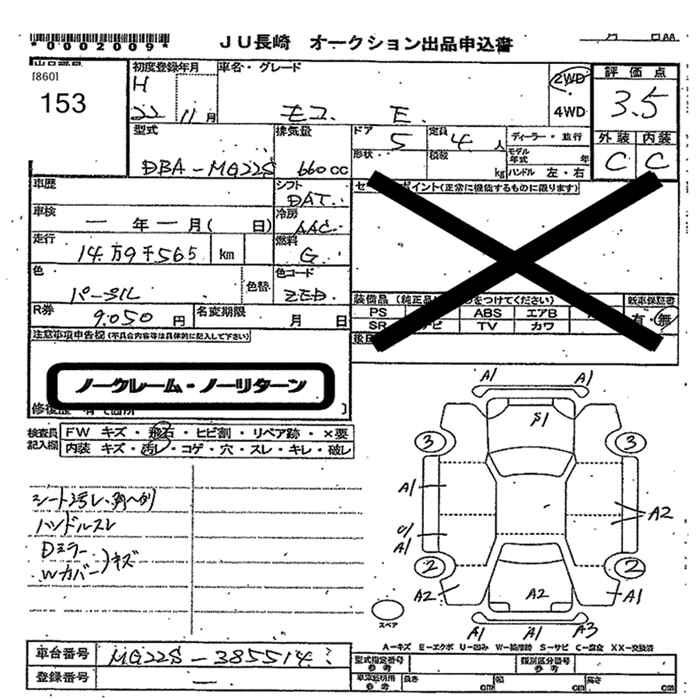 *0002009* JU長崎 オークション出品申込書
[860]
153
初度登録年月 車名・グレード
H 22 11月 モコ E
2WD
4WD
評価点
3.5
外装 内装
C C
型式 DBA-MG22S
排気量 660cc
ドア 5 定員 4人 ディーラー・並行
形状 積載 kg モデル年式 年
ハンドル 左・右
車歴
シフト DAT
車検 ー年ー月( 日)
冷房 AAC
走行 14万9千565 km
燃料 G
色 パープル 色替
色コード ZEB
R券 9.050円 名変期限 月 日
ポイント(正常に機能するものに限ります)
装備品(純正品 をつけてください) 新車保証書
PS ABS エアB 有・無
SR TV カワ
注意事項申告欄(不具合内容等は具体的に記入して下さい)
ノークレーム・ノーリターン
検査員記入欄
FW キズ・飛石・ヒビ割・リペア跡・×要
内装 キズ・汚レ・コゲ・穴・スレ・キレ・破レ
シート汚レ、
ハンドルスレ
Dミラー
Wカバー)キズ
A1 A1
S1
3 3
A1
A2
U1
A1
2 2
A2 A2 A1
A1 A1 A3
スペア
A-キズ E-エクボ U-凹み W-補修跡 S-サビ C-腐食 XX-交換済
車台番号 MG22S-385514
登録番号
型式指定番号 参考 類別区分番号 参考
車庫証明用 参考 長さ cm 幅 cm 高さ cm